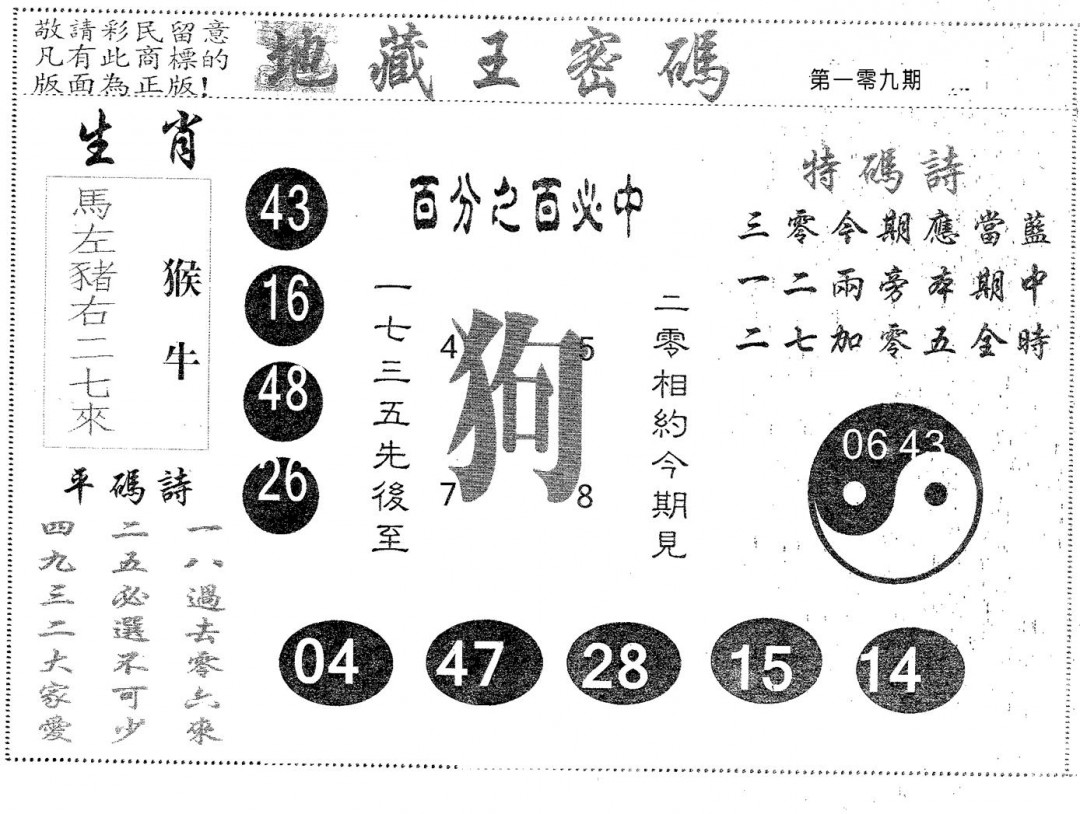 敬請彩民留意
凡有此商標的
版面為正版!
地藏王密碼
第一零九期
生肖
馬左豬右二七來
猴牛
43
16
48
26
百分之百必中
一七三五先後至
4
5
狗
7
8
二零相約今期見
特碼詩
三零今期應當藍
一二兩旁本期中
二七加零五全時
06 43
平碼詩
一八過去零六來
二五必選不可少
四九三二大家愛
04
47
28
15
14